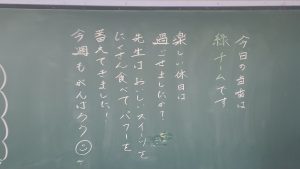 今日の当番は
緑チームです
楽しい休日は
過ごせましたか?
先生は、おいしいスイーツを
たくさん食べて、パワーを
蓄えてきました!
今週もがんばろう